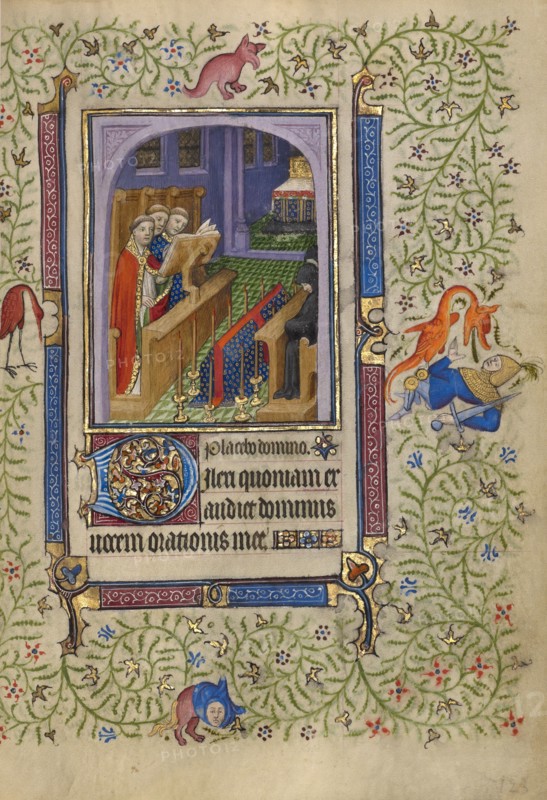 Placebo domino.
Dilexi quoniam ex
audiet dominus
uocem orationis mee.
PHOTO12